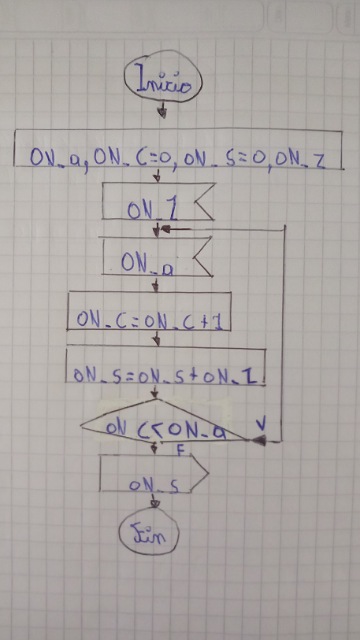 Inicio
ON_a, ON_C=0, ON_S=0, ON_Z
ON_1
ON_a
ON_C=ON_C+1
ON_S=ON_S+ON_1
ON C<ON_a
V
F
ON_S
Fin